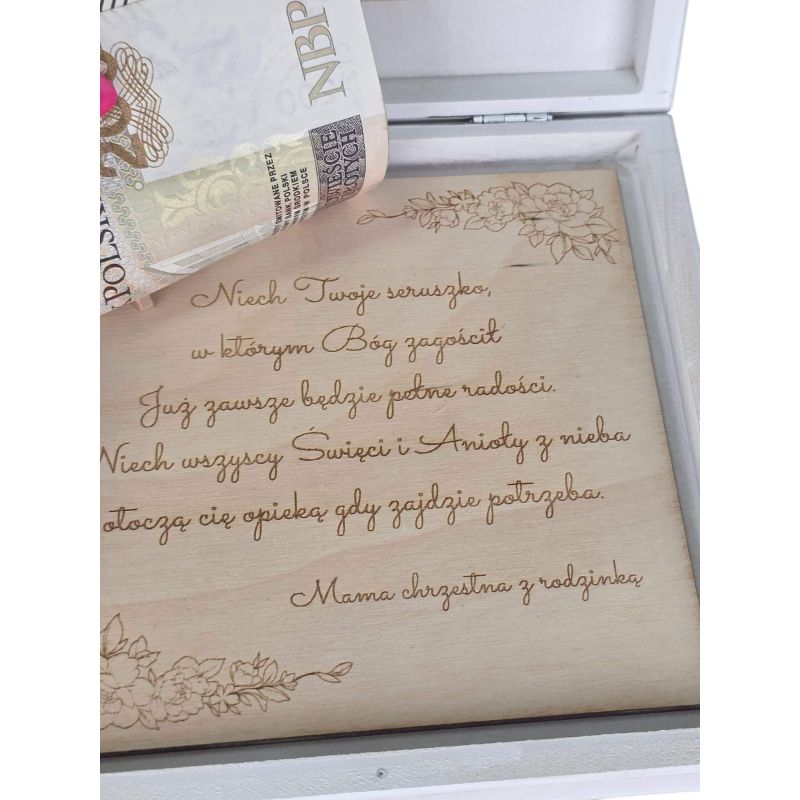 NBP
200
POLSK
EMITOWANE PRZEZ
BANK POLSKI
ŚRODKIEM
W POLSCE
DWIEŚCIE
ZŁOTYCH
Niech Twoje seruszko,
w którym Bóg zagościł
Już zawsze będzie pełne radości.
Niech wszyscy Święci i Anioły z nieba
otoczą cię opieką gdy zajdzie potrzeba.
Mama chrzestna z rodzinką